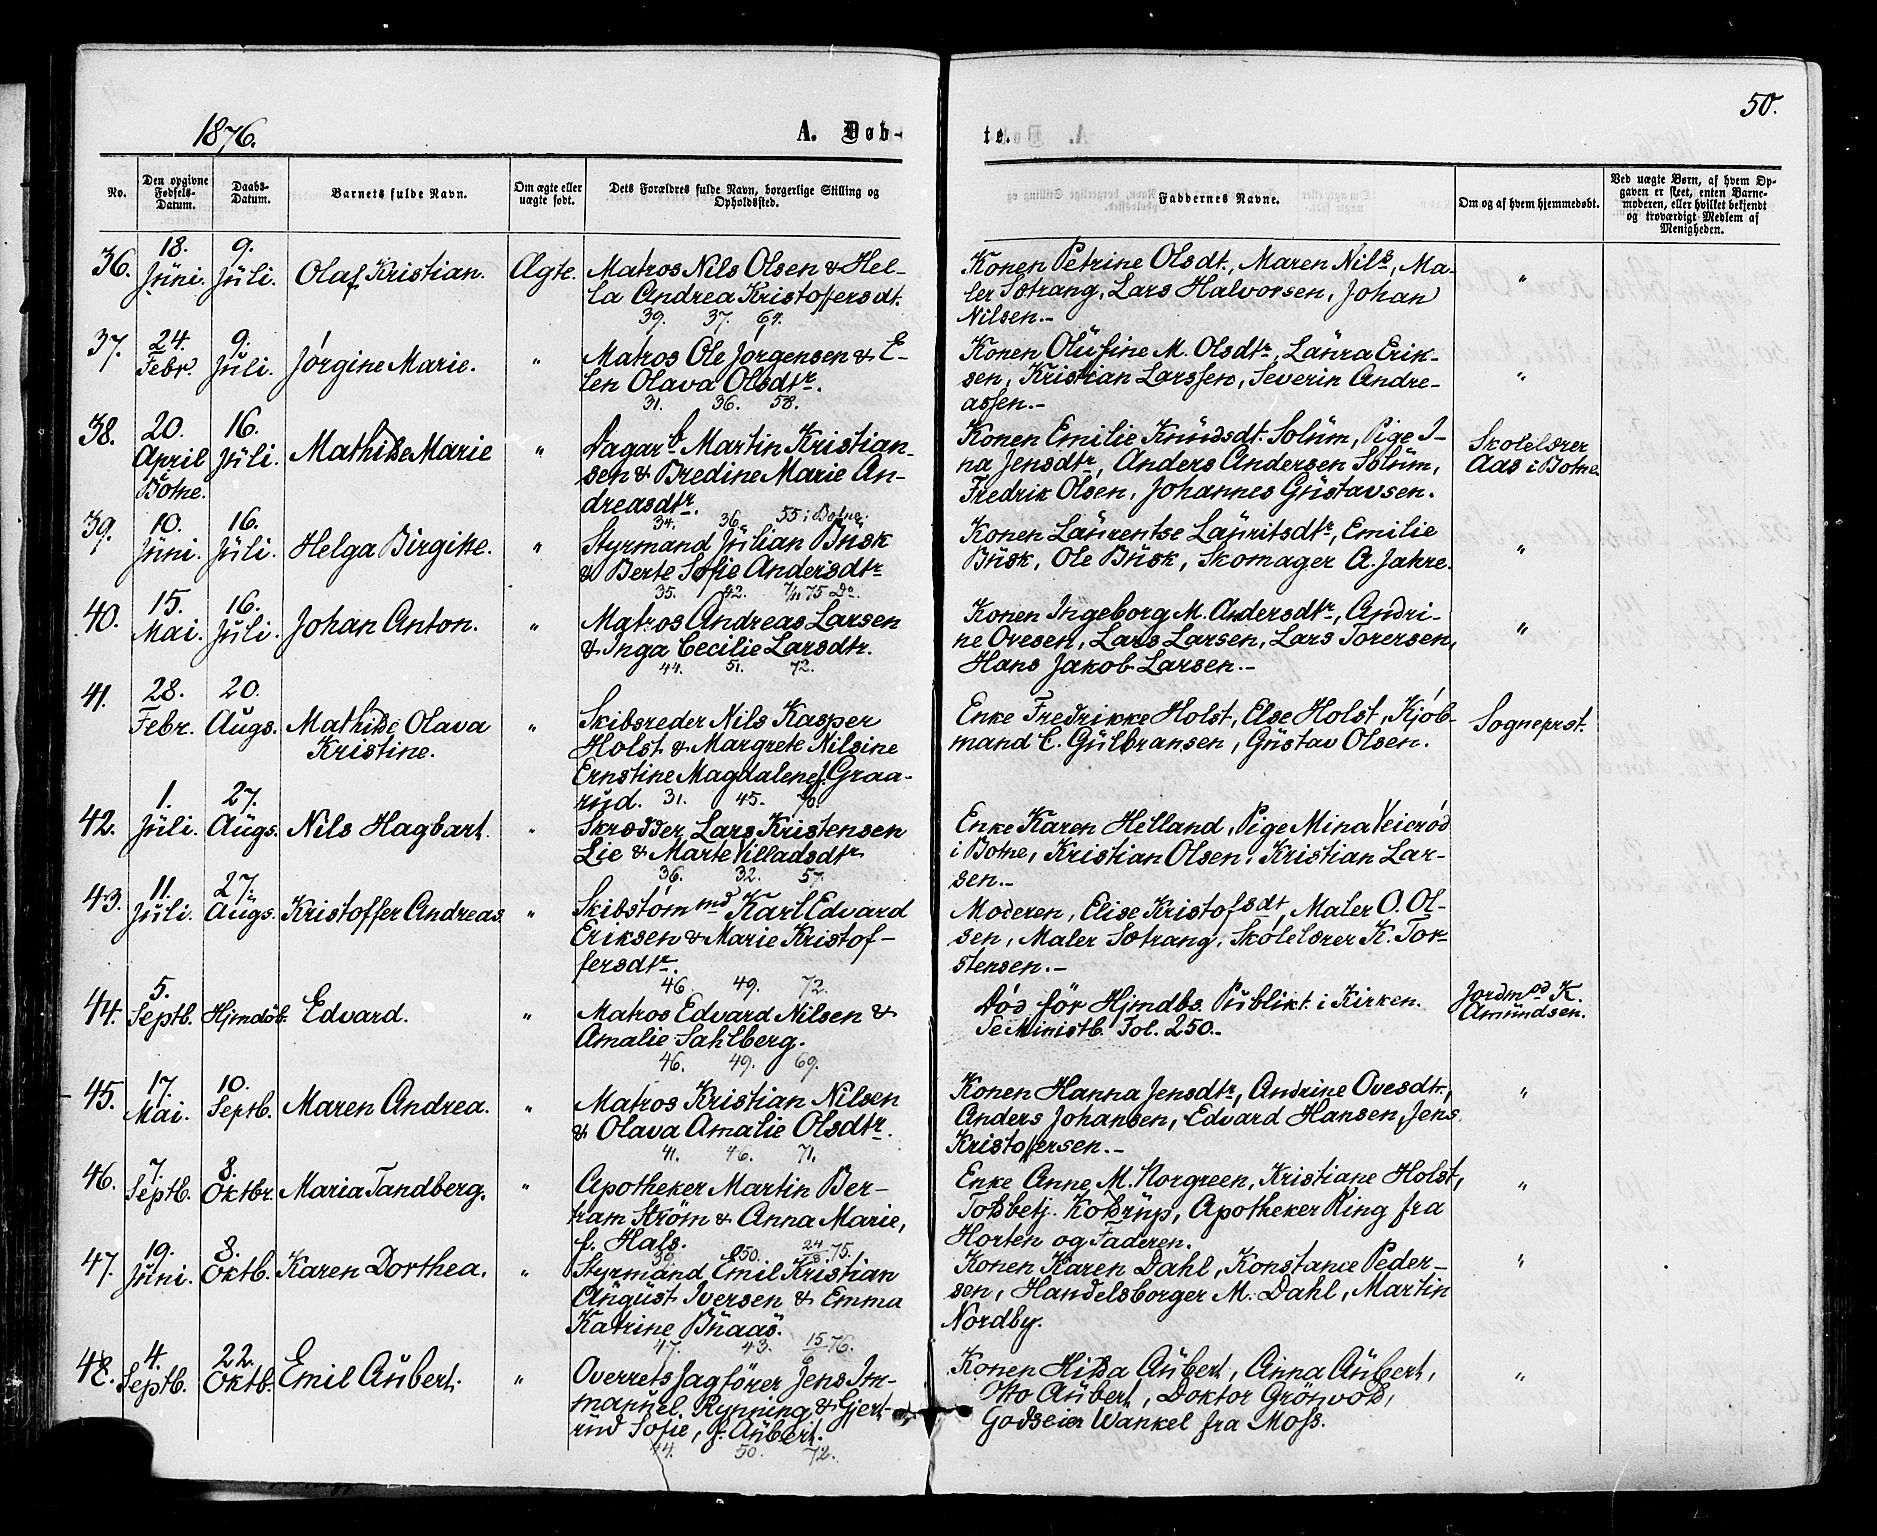 50.
1876.
A. Døb-
te.
No.
Den opgivne Fødsels-Datum.
Daabs-Datum.
Barnets fulde Navn.
Om ægte eller uægte født.
Dets Forældres fulde Navn, borgerlige Stilling og Opholdssted.
Faddernes Navne.
Om og af hvem hjemmedøbt.
Ved uægte Børn, af hvem Op-
gaven er skeet, enten Barne-
moderen, eller hvilket bekjendt
og troværdigt Medlem af
Menigheden.
36. 18. Juni. 9. Juli. Olaf Kristian. Ægte.
Matros Nils Olsen & Hel-
la Andrea Kristoffersdt.
39. 37. 64.
Konen Petrine Olsdt., Maren Nils, Ma-
ler Sætrang, Lars Halvorsen, Johan
Nilsen.-
"
37. 24. Febr. 9. Juli. Jørgine Marie. "
Matros Ole Jørgensen & E-
len Olava Olsdtr.
31. 36. 58.
Konen Olufine M. Olsdtr, Laura Erik-
sen, Kristian Larssen, Severin Andre-
assen.-
"
38. 20. April Botne. 16. Juli. Mathilde Marie "
Dagarb. Martin Kristian-
sen & Bredine Marie An-
dreasdtr.
34. 36. 55 i Botne.
Konen Emilie Knudsdt. Solum, Pige I-
na Jensdtr, Anders Andersen Solum,
Fredrik Olsen, Johannes Gustavsen.
Skolelærer
Aas i Botne
39. 10. Juni. 16. Juli. Helga Birgitte. "
Styrmand Julian Busk
& Berte Sofie Andersdtr
35. 42. 7/11 75 Do.
Konen Laurentse Lauritsdtr, Emilie
Busk, Ole Busk, Skomager A. Jahre.
"
40. 15. Mai. 16. Juli. Johan Anton. "
Matros Andreas Larsen
& Inga Cecilie Larsdtr.
44. 51. 72.
Konen Ingeborg M. Andersdtr, Andri-
ne Ovesen, Lars Larsen, Lars Torersen,
Hans Jakob Larsen.-
"
41. 28. Febr. 20. Augs. Mathilde Olava
Kristine. "
Skibsreder Nils Kasper
Holst & Margrete Nilsine
Ernstine Magdalene f. Graa-
rud. 31. 45. 70.
Enke Fredrikke Holst, Else Holst, Kjøb-
mand C. Gulbransen, Gustav Olsen.
Sogneprst.
42. 1. Juli. 27. Augs. Nils Hagbart. "
Skrædder Lars Kristensen
Lie & Marte Villadsdtr
36. 32. 57.
Enke Karen Helland, Pige Mina Veierød
i Botne, Kristian Olsen, Kristian Lar-
sen.-
43. 11. Juli. 27. Augs. Kristoffer Andreas. "
Skibstømmd Karl Edvard
Eriksen & Marie Kristof-
fersdtr.
46. 49. 72.
Moderen, Elise Kristofsdt, Maler O. Ol-
sen, Maler Sætrang, Skolelærer K. Tor-
stensen.-
44. 5. Septb. Hjmdøb. Edvard. "
Matros Edvard Nilsen &
Amalie Sahlberg.
46. 49. 69.
Død før Hjmdbs Publikt. i Kirken.
Se Ministb. Fol. 250.-
Jordmod K.
Amundsen.
45. 17. Mai. 10. Septb. Maren Andrea. "
Matros Kristian Nilsen
& Olava Amalie Olsdtr.
41. 46. 71.
Konen Hanna Jensdtr, Andrine Ovesdtr,
Anders Johansen, Edvard Hansen, Jens
Kristofersen.-
"
46. 7. Septb. 8. Oktbr. Maria Tandberg. "
Apotheker Martin Ber-
tram Strøm & Anna Marie,
f. Hals.
39. 50. 24/8 75.
Enke Anne M. Norgreen, Kristiane Holst,
Toldbetj. Koldrup, Apotheker Ring fra
Horten og Faderen.
"
47. 19. Juni. 8. Oktb. Karen Dorthea. "
Styrmand Emil Kristian
August Iversen & Emma
Katrine Bnaas.
47. 43. 15/6 76.
Konen Karen Dahl, Konstance Peder-
sen, Handelsborger M. Dahl, Martin
Nordby.
"
48. 4. Septb. 22. Oktb. Emil Aubert. "
Overrets Jagfører Jens Im-
manuel Rynning & Gjert-
rud Sofie, f. Aubert.
44. 50. 72.
Konen Hilda Aubert, Anna Aubert,
Otto Aubert, Doktor Grönvold,
Godseier Wankel fra Moss.
"